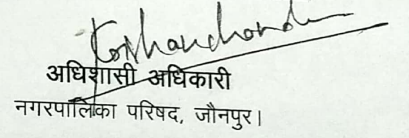 अधिशासी अधिकारी
नगरपालिका परिषद, जौनपुर।